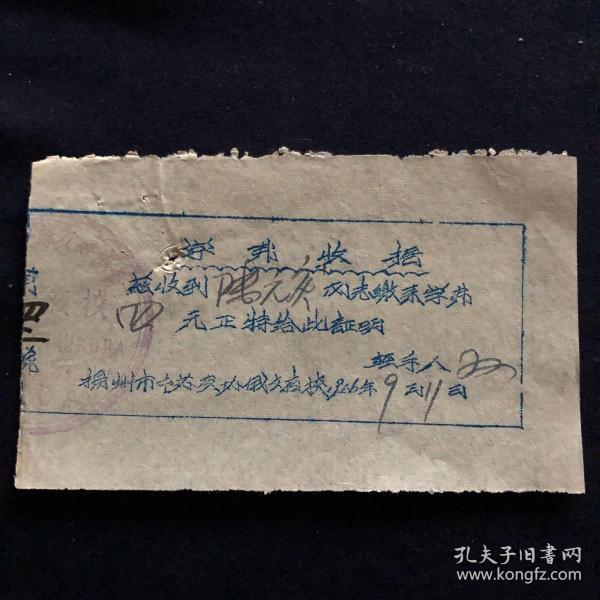 学费收据
兹收到陈元庆同志缴来学费
四元正特给此证明
经手人
扬州市中苏友协俄文夜校1956年9月11日
四二
号
孔夫子旧书网
www.kongfz.com